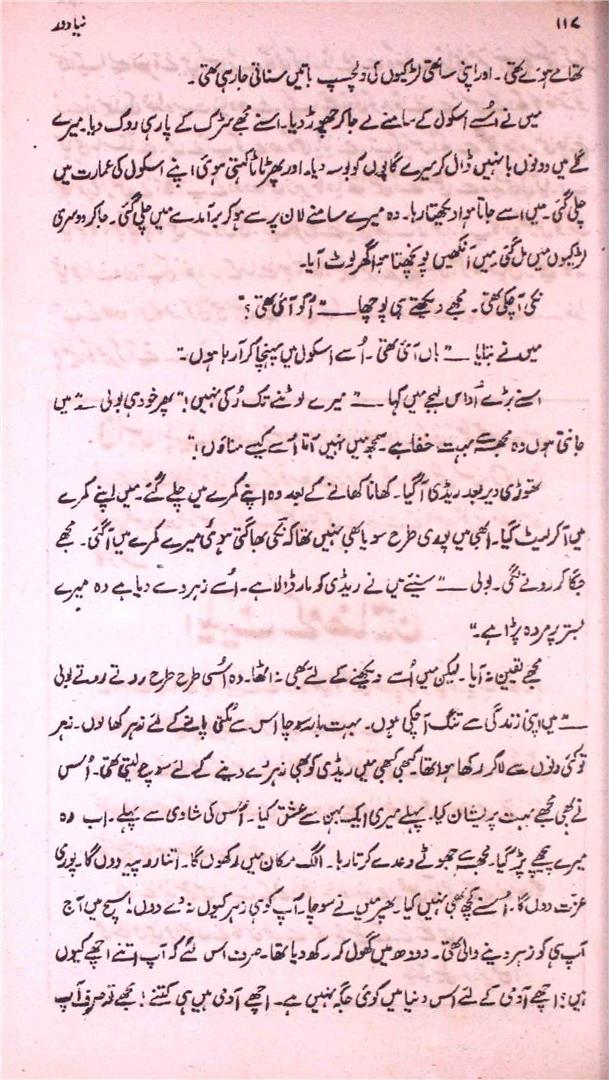 ۱۱۷ نیا دور
تھامے ہوئے تھی ۔ اور اپنی ساتھی لڑکیوں کی دلچسپ باتیں سناتی جا رہی تھی ۔
میں نے اُسے اسکول کے سامنے لے جا کر چھوڑ دیا ۔ اسنے مجھے سڑک کے پار ہی روک دیا ۔ میرے
گلے میں دونوں بانہیں ڈال کر میرے گالوں کو بوسہ دیا ۔ اور پھر ٹاٹا کہتی ہوئی اپنے اسکول کی عمارت میں
چلی گئی ۔ میں اسے جاتا ہوا دیکھتا رہا ۔ وہ میرے سامنے لان پر سے ہو کر برآمدے میں چلی گئی ۔ جا کر دوسری
لڑکیوں میں مل گئی ۔ میں آنکھیں پونچھتا ہوا گھر لوٹ آیا ۔
نکی آ چکی تھی ۔ مجھے دیکھتے ہی پوچھا ــــ " آگو آئی تھی ؟ "
میں نے بتایا ــــ " ہاں آئی تھی ۔ اُسے اسکول میں پہنچا کر آ رہا ہوں ۔ "
اسنے بڑے اُداس لہجے میں کہا ــــ " میرے لوٹنے تک رُکی نہیں ! " پھر خود ہی بولی ــــ " میں
جانتی ہوں وہ مجھ سے بہت خفا ہے ۔ سمجھ میں نہیں آتا اُسے کیسے مناؤں ! "
تھوڑی دیر بعد ریڈی آ گیا ۔ کھانا کھانے کے بعد وہ اپنے کمرے میں چلے گئے ۔ میں اپنے کمرے
میں آ کر لیٹ گیا ۔ ابھی میں پوری طرح سویا بھی نہیں تھا کہ نکی بھاگتی ہوئی میرے کمرے میں آ گئی ۔ مجھے
جگا کر رونے لگی ۔ بولی ــــ " سنیئے میں نے ریڈی کو مار ڈالا ہے ۔ اُسے زہر دے دیا ہے وہ میرے
بستر پر مردہ پڑا ہے ۔ "
مجھے یقین نہ آیا ۔ لیکن میں اُسے دیکھنے کے لئے بھی نہ اٹھا ۔ وہ اسی طرح طرح روتے روتے بولی
ــــ " میں اپنی زندگی سے تنگ آ چکی ہوں ۔ بہت بار سوچا اس سے مُکتی پانے کے لئے زہر کھا لوں ۔ زہر
تو کئی دنوں سے لا کر رکھا ہوا تھا ۔ کبھی کبھی میں ریڈی کو بھی زہر دے دینے کے لئے سوچ لیتی تھی ۔ اُس
نے بھی مجھے بہت پریشان کیا ۔ پہلے میری ایک بہن سے عشق کیا ۔ اُس کی شادی سے پہلے ۔ اب وہ
میرے پیچھے پڑ گیا ۔ مجھ سے جھوٹے وعدے کرتا رہا ۔ الگ مکان میں رکھوں گا ۔ اتنا روپیہ دوں گا ۔ پوری
عزّت دوں گا ۔ اُسنے کچھ بھی نہیں کیا ۔ پھر میں نے سوچا ۔ آپ کو ہی زہر کیوں نہ دے دوں ! سچ میں آج
آپ ہی کو زہر دینے والی تھی ۔ دودھ میں گھول کر رکھ دیا تھا ۔ صرف اس لئے کہ آپ اتنے اچھے کیوں
ہیں ؟ اچھے آدمی کے لئے اس دنیا میں کوئی جگہ نہیں ہے ۔ اچھے آدمی ہیں ہی کتنے ! مجھے تو صرف آپ